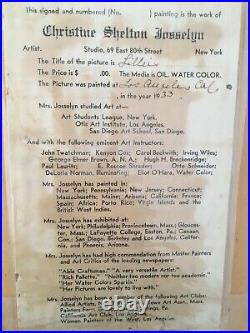 This signed and numbered (No.        ) painting is the work of
Christine Shelton Josselyn
Artist. Studio, 69 East 80th Street New York
The title of the picture is Lillies
The Price is $ .00. The Media is OIL. WATER COLOR.
The Picture was painted at Los Angeles Cal
in the year 1933.
Mrs. Josselyn studied Art at—
Art Students League, New York,
Otis Art Institute, Los Angeles,
San Diego Art School, San Diego.
And with following eminent Art Instructors:
John Twachtman; Carol Beckwith; Irving Wiles;
George Elmer Brown, A. N. A.; Hugh H. Breckenridge;
Paul Lauritz; E. Roscoe Shrader; Otto Schneider;
DeLorie Norman, Illuminating; Eliot O'Hara, Water Color;
Mrs. Josselyn has painted in:
New York; Pennsylvania; New Jersey; Connecticut;
Massachusetts; Maine; Arizona; California; France;
Spain; Africa; Porto Rico; Virgin Islands and the
British West Indies.
Mrs. Josselyn has exhibited at:
New York; Philadelphia; Provincetown, Mass.; Gloucester,
Mass.; LaFayette College, Easton, Pa.; Coronado,
San Diego, Berkeley and Los Angeles, Califor-
nia, and Phoenix, Arizona.
Mrs. Josselyn has had high commendation from Master Painters
and Art Critics of the leading newspapers:
"Able Craftsman." "A very versatile Artist."
"Rich Pallette." "Neither too modern nor too academic."
"Her Water Colors are superb."
"Her Pictures are lovely to live with."
Mrs. Josselyn has been of the following Art Clubs:
Allied Artists,
Painters Farm,
Art, Los Angeles, California,
Women Painters of the West, Los Angeles.